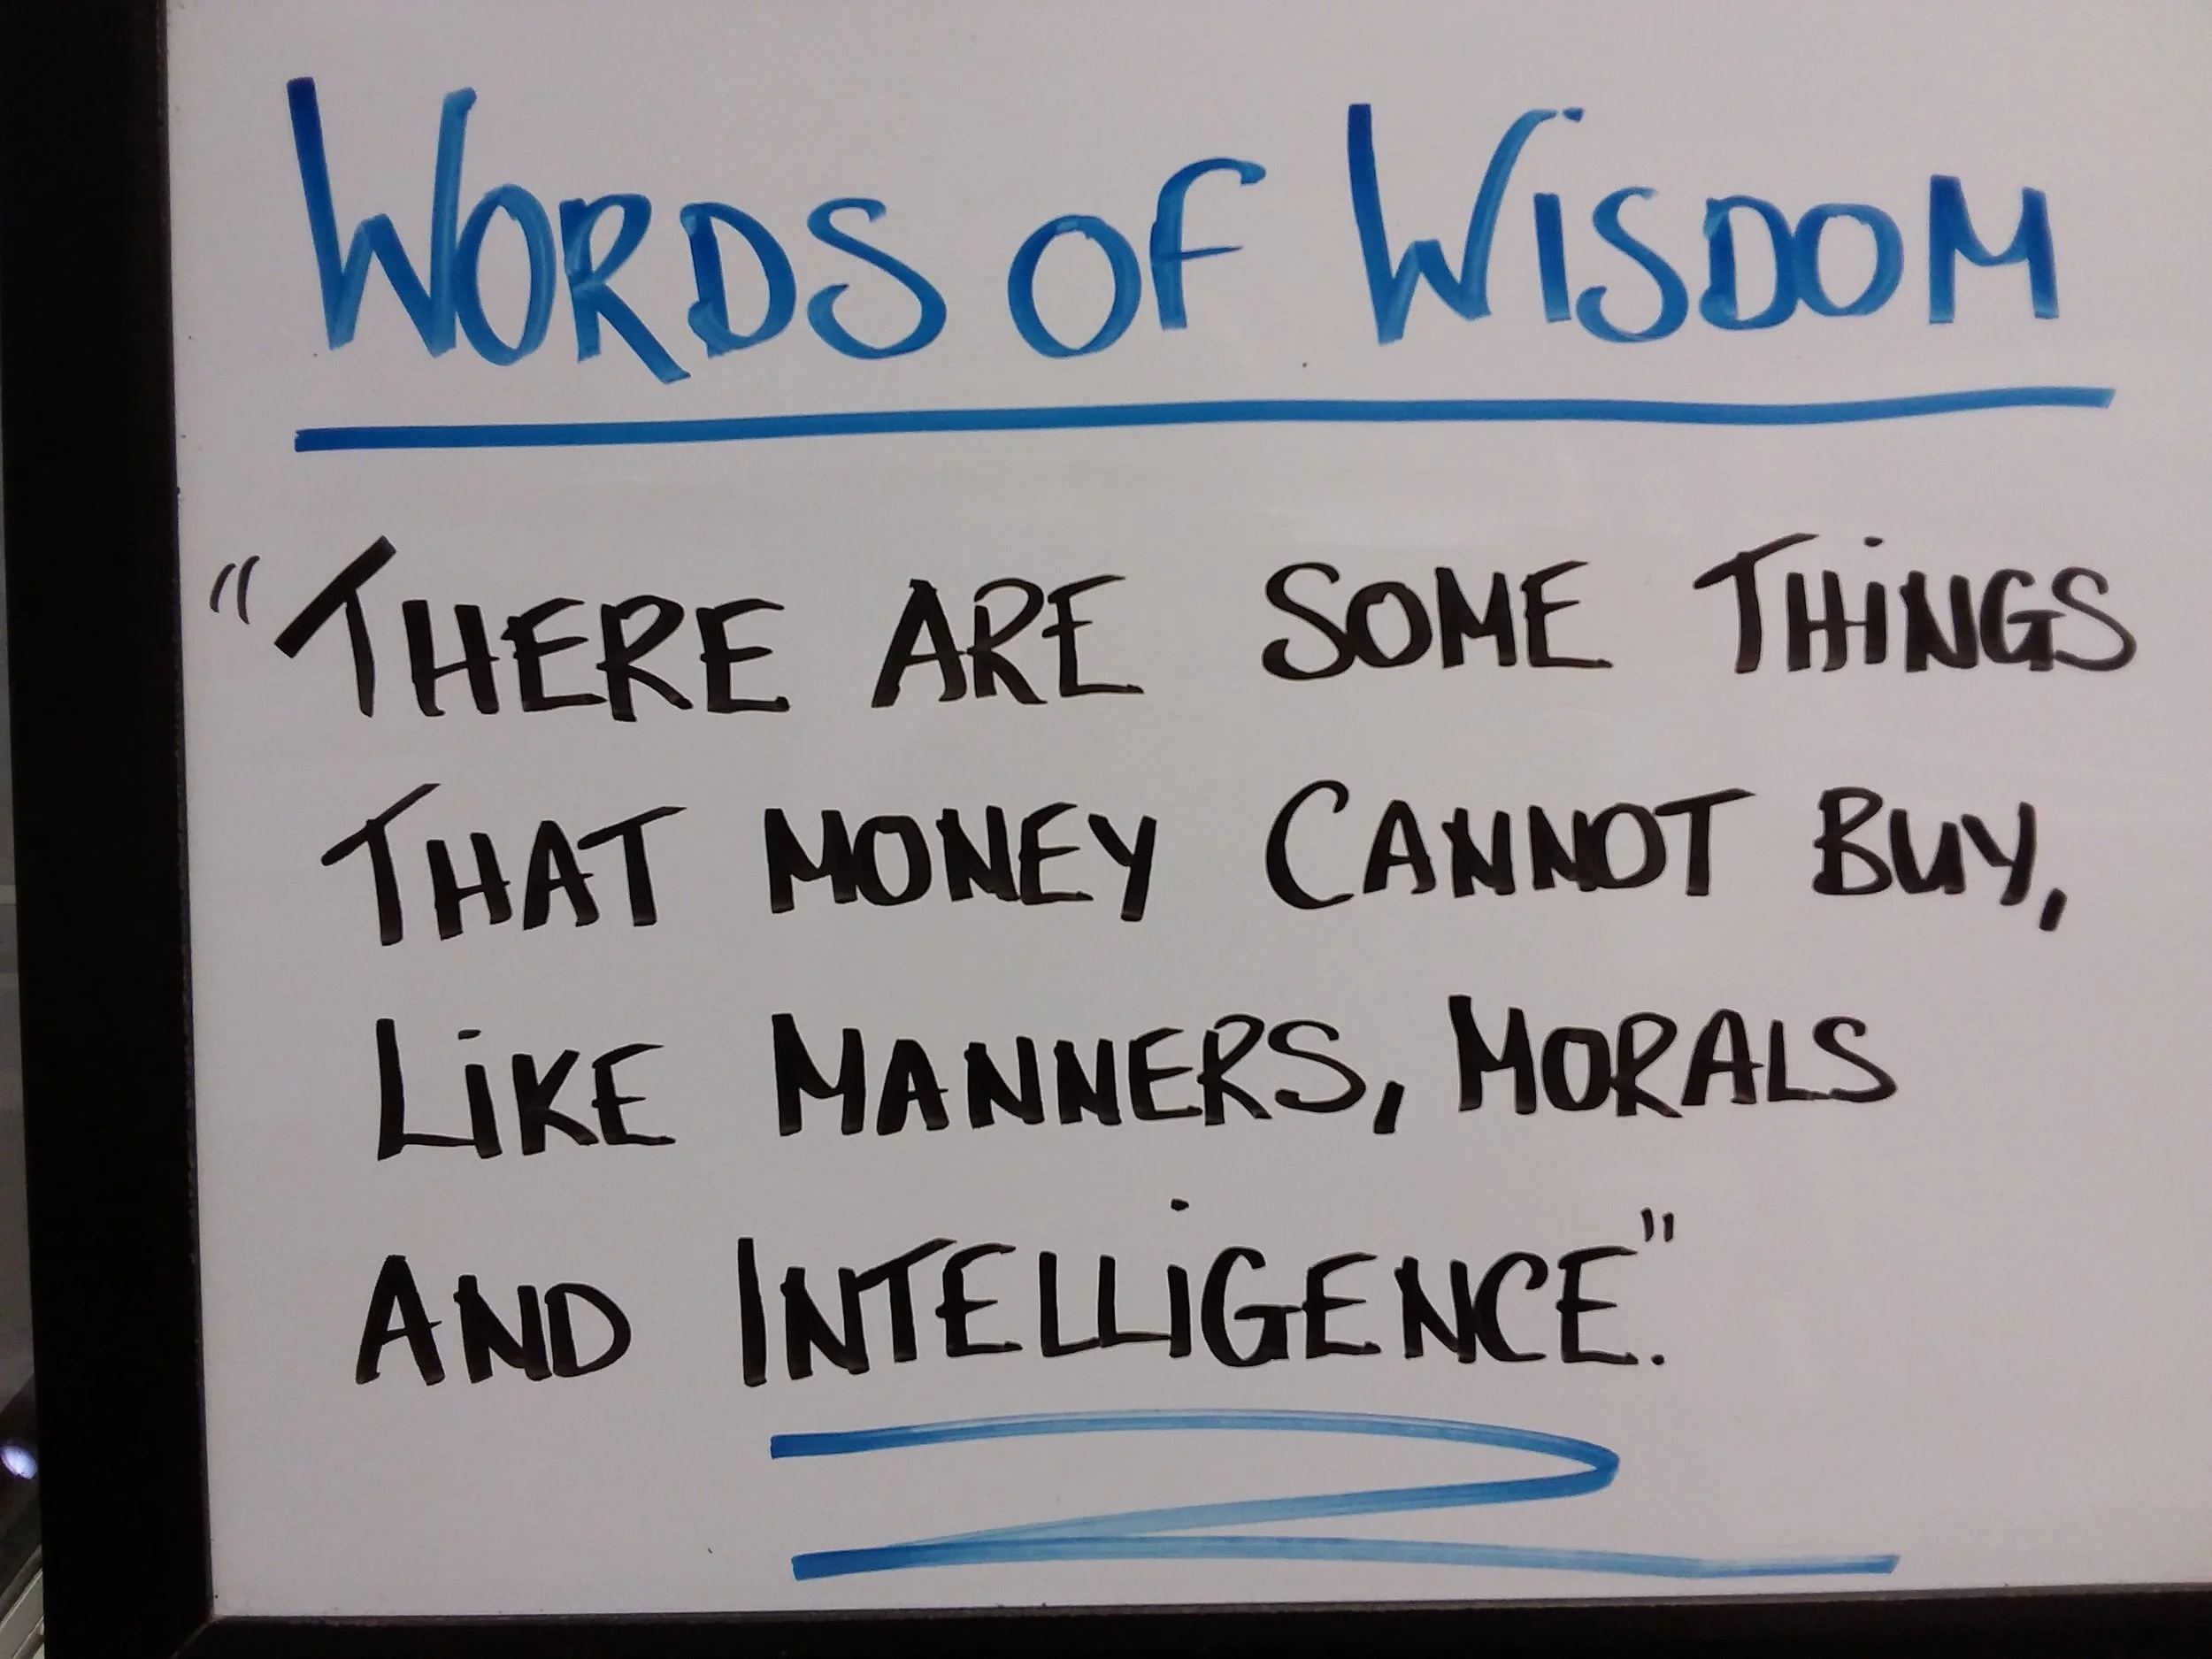 WORDS OF WISDOM
"THERE ARE SOME THiNGS
THAT MONEY CANNOT BUY,
LiKE MANNERS, MORALS
AND INTELLiGENCE."